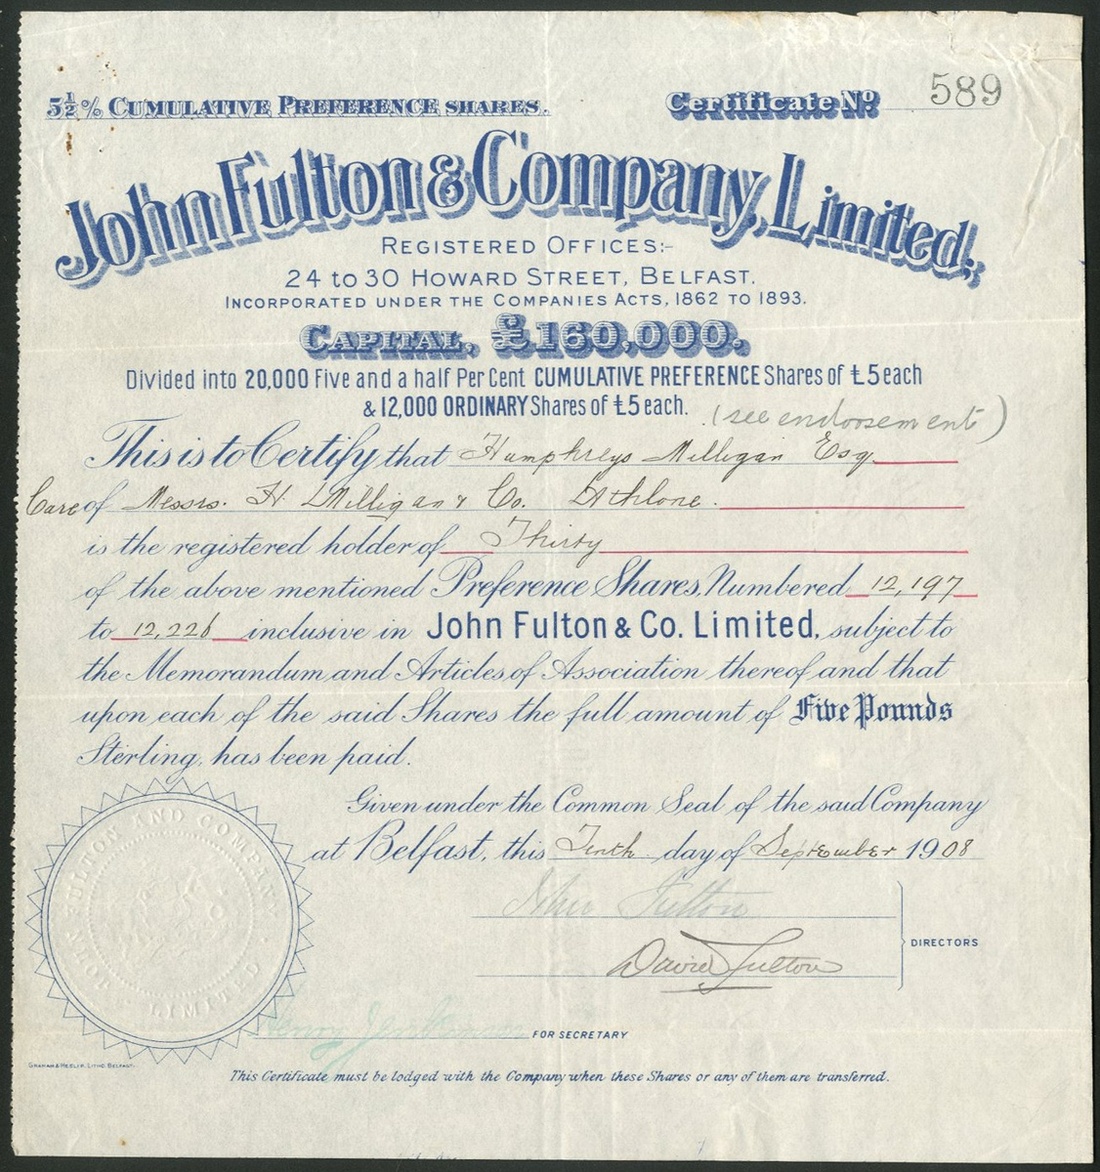 5½% CUMULATIVE PREFERENCE SHARES. Certificate No 589
John Fulton & Company, Limited.
REGISTERED OFFICES:-
24 to 30 HOWARD STREET, BELFAST.
INCORPORATED UNDER THE COMPANIES ACTS, 1862 TO 1893.
CAPITAL, £160,000.
Divided into 20,000 Five and a half Per Cent CUMULATIVE PREFERENCE Shares of £5 each
& 12,000 ORDINARY Shares of £5 each. (see endorsement)
This is to Certify that Humphreys Milligan Esq
Care of Messrs. H. Milligan & Co. Athlone.
is the registered holder of Thirty
of the above mentioned Preference Shares, Numbered 12,197
to 12,226 inclusive in John Fulton & Co. Limited, subject to
the Memorandum and Articles of Association thereof and that
upon each of the said Shares the full amount of Five Pounds
Sterling, has been paid.
Given under the Common Seal of the said Company
at Belfast, this Tenth day of September 1908
John Fulton
David Fulton
DIRECTORS
JOHN FULTON AND COMPANY LIMITED
Henry FOR SECRETARY
GRAHAM & HESLIP, LITHO. BELFAST.
This Certificate must be lodged with the Company when these Shares or any of them are transferred.